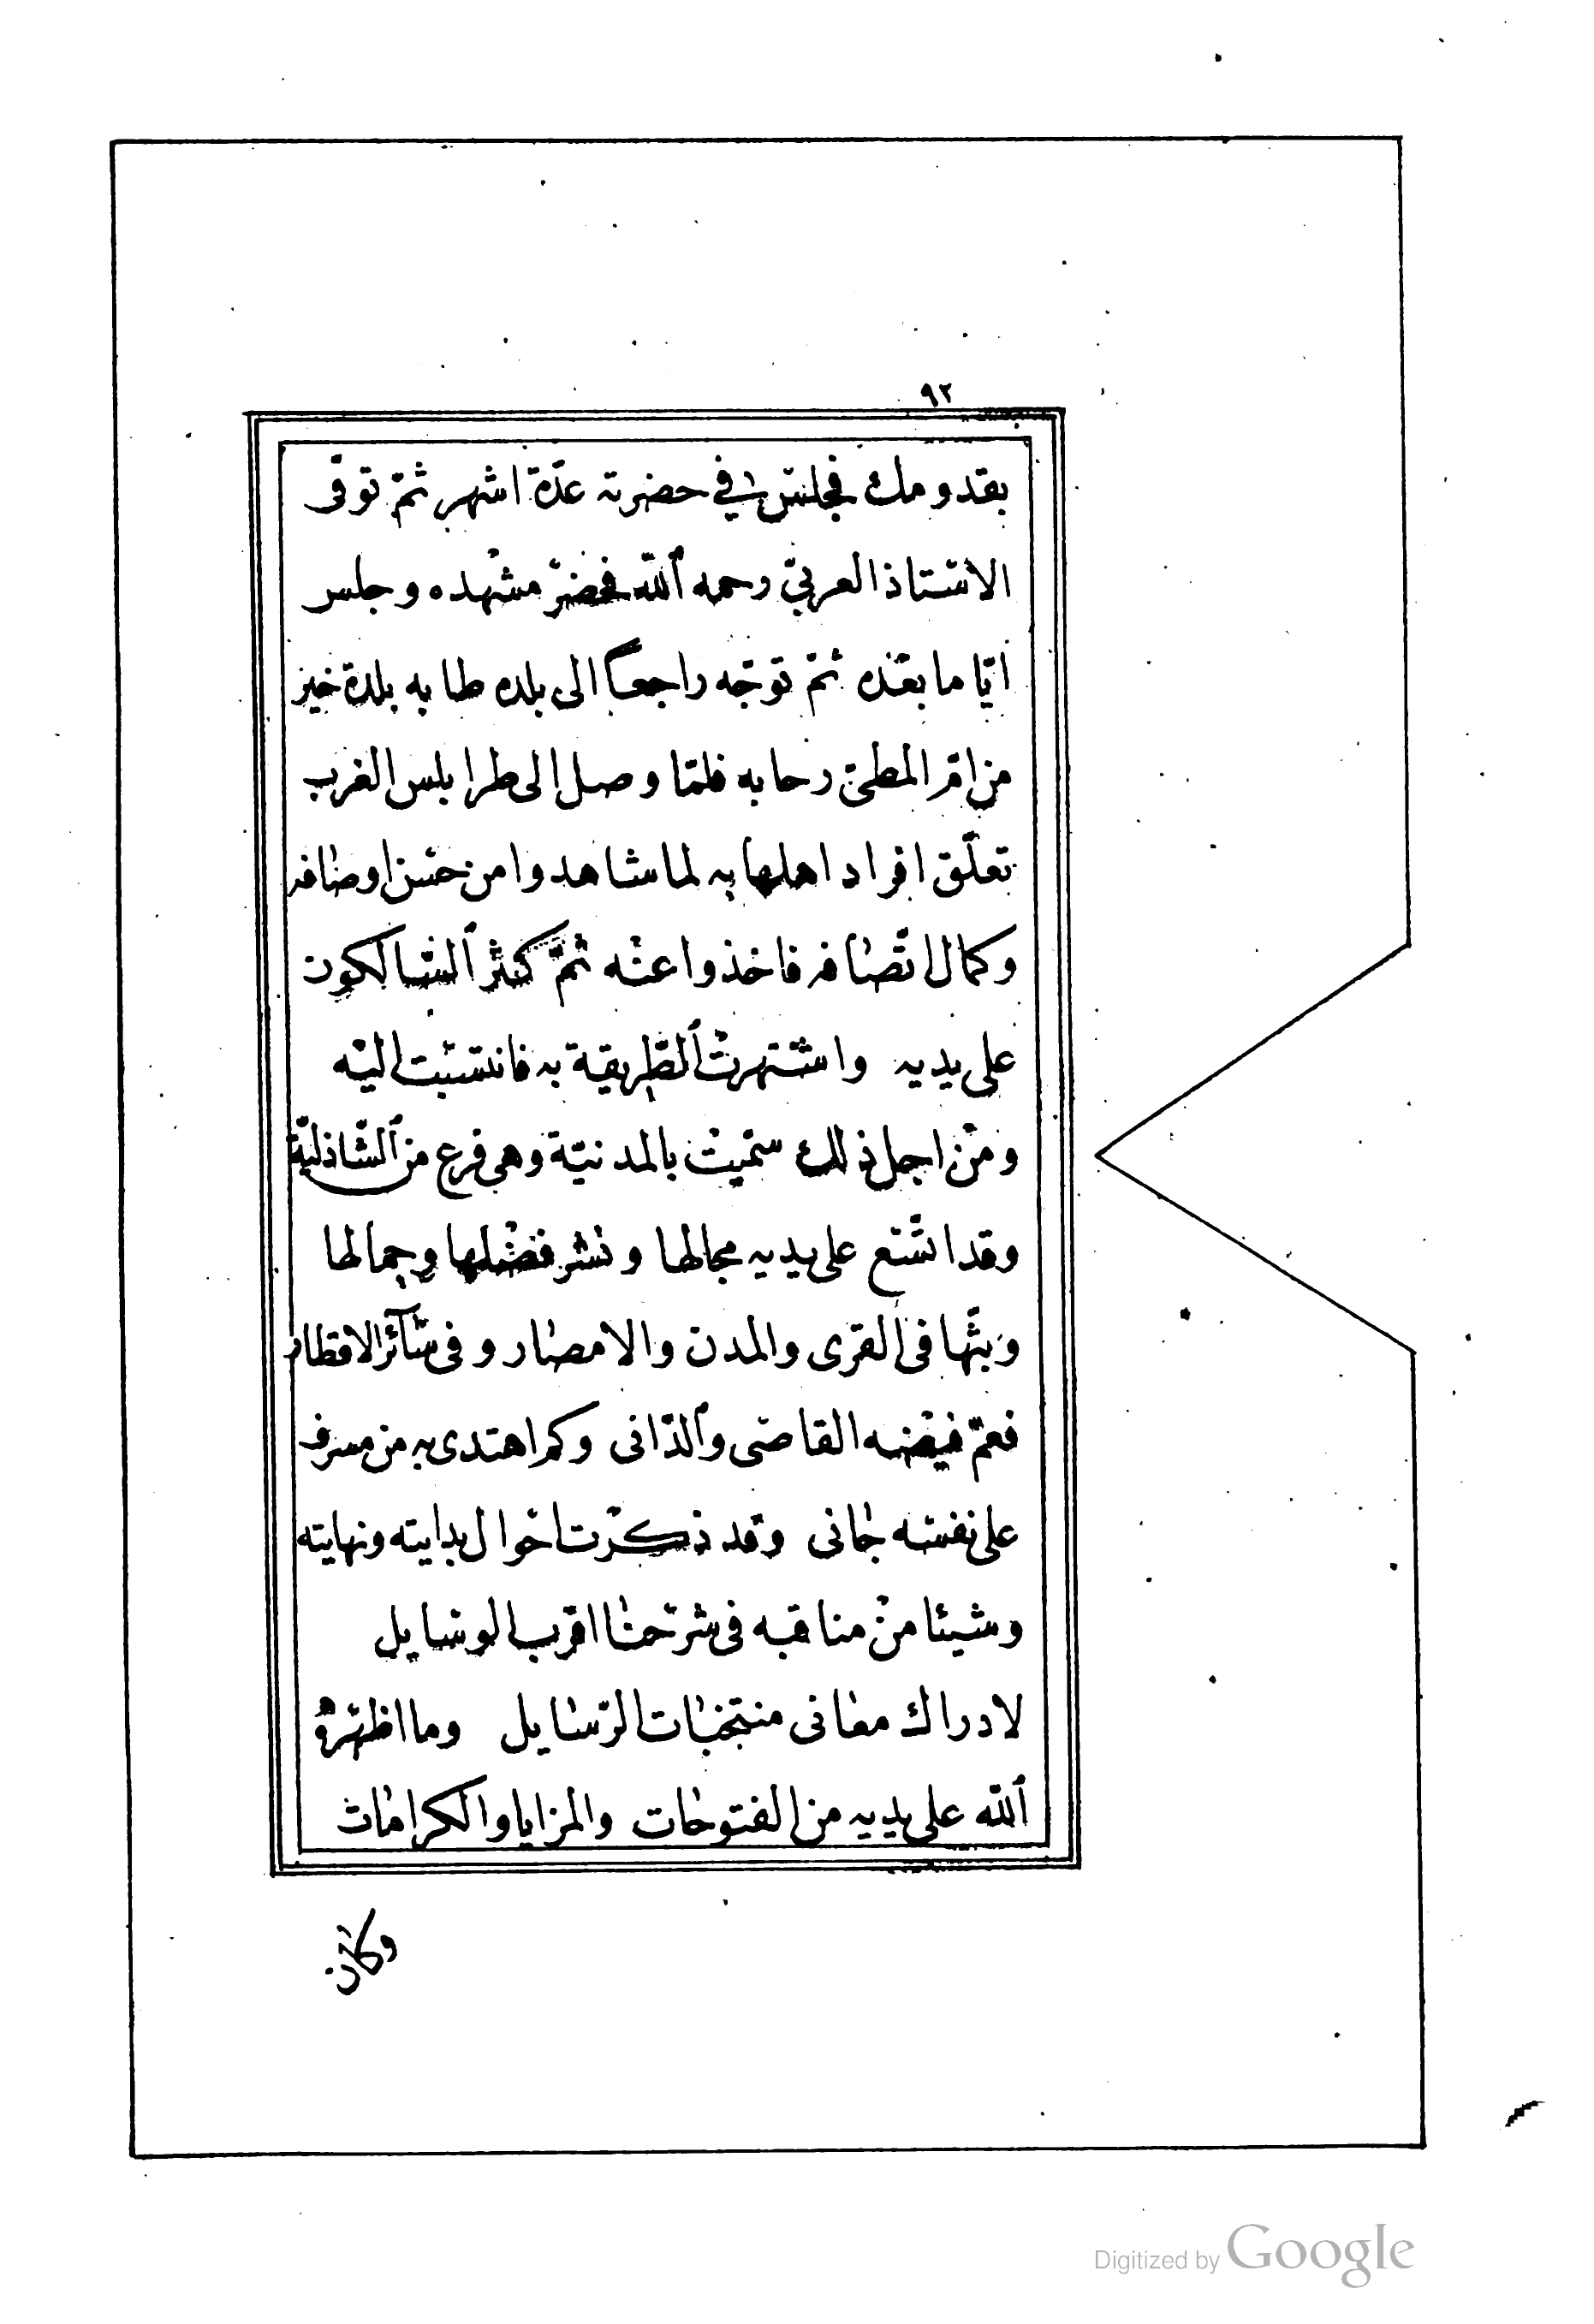 ٩٢
بقدومك فجلس في حضرته عدّة اشهر ثمّ توفّى
الاستاذ العربيّ رحمه ٱللّه فحضر مشهده وجلس
ايّاما بعده ثمّ توجّه راجعاً الى بلده طابه بلدة خير
من امّ المطيّ رحابه فلمّا وصل الى طرابلس الغرب
تعلّق افراد اهلها به لما شاهدوا من حسن اوصافه
وكمال اتّصافه فاخذوا عنه ثمّ كثر ٱلسّالكون
على يديه واشتهرت ٱلطّريقة به فانتسبت اليه
ومن اجل ذلك سمّيت بالمدنيّة وهى فرع من ٱلشّاذليّة
وقد اتّسع على يديه مجالها ونشر فضلها وجمالها
وبثّها فى القرى والمدن والامصار وفى سآئر الاقطار
فعمّ فيضه القاصى وٱلدّانى وكم اهتدى به من مسرف
على نفسه جانى وقد ذكرت احوال بدايته ونهايته
وشيئا من مناقبه فى شرحنا اقرب الوسايل
لادراك معانى منتخبات الرّسايل وما اظهره
ٱللّه على يديه من الفتوحات والمزايا والكرامات
وكان
Digitized by Google